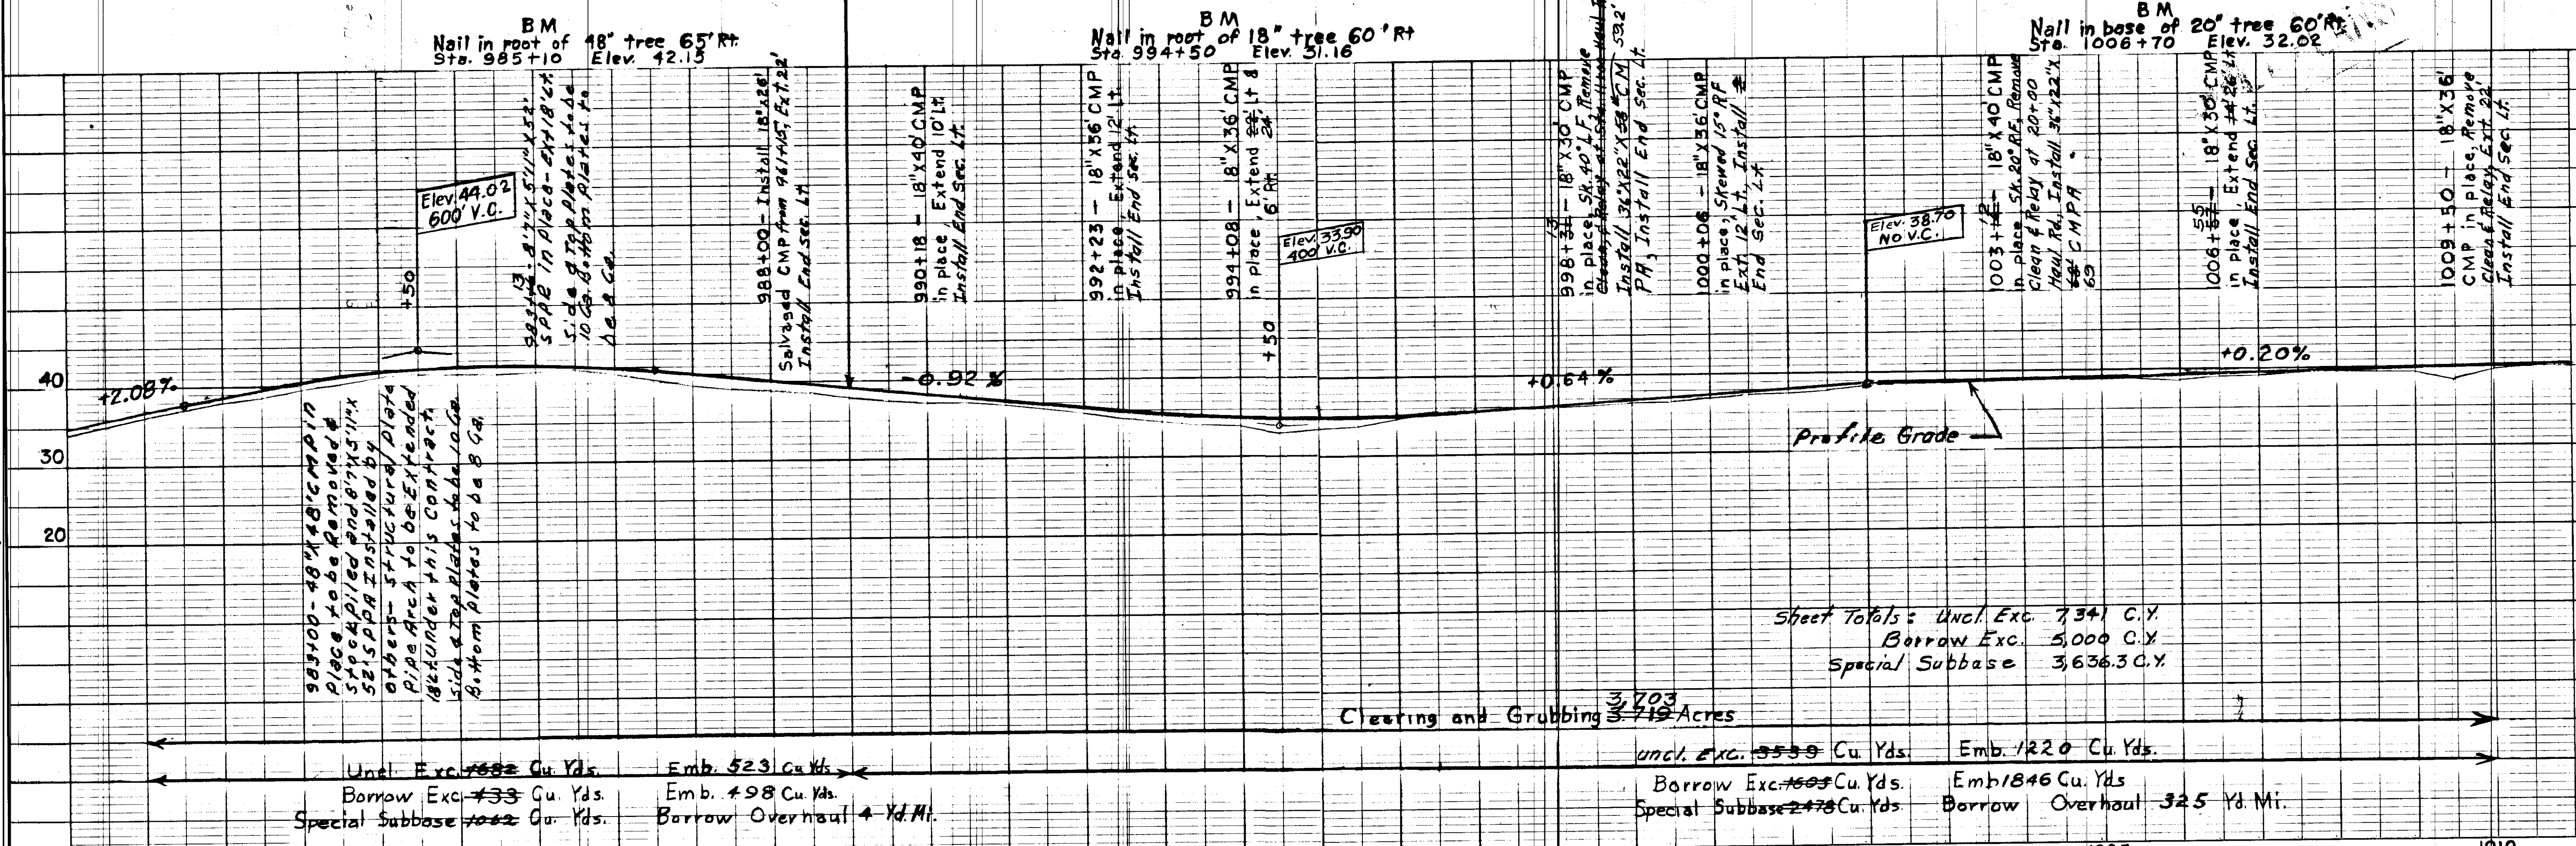 BM
Nail in root of 48" tree 65' Rt.
Sta. 985+10 Elev. 42.15
BM
Nail in root of 18" tree 60' Rt
Sta 994+50 Elev. 31.16
BM
Nail in base of 20" tree 60' Rt.
Sta. 1006+70 Elev. 32.02
Elev. 44.02
600' V.C.
+50
13
8'7"X5'11"X52'
SPPA in Place - Ext 18' Lt.
Side & Top Plates to be
10 Ga. Bottom Plates to
be 8 Ga.
988+00 - Install 18"x26'
Salvaged CMP from 961+15, Ext. 22'
Install End Sec. Lt.
990+18 - 18"X40' CMP
in place, Extend 10' Lt.
Install End Sec. Lt.
992+23 - 18"X36' CMP
in place, Extend 12' Lt.
Install End Sec. Lt.
994+08 - 18"X36' CMP
in place, Extend 22' Lt &
6' Rt. 24'
Elev. 33.90
400' V.C.
+50
13
998+31 - 18"X30' CMP
in place, Sk. 40° L.F. Remove
Install 36"X22"X58' CM 59.2'
PA, Install End Sec. Lt.
1000+06 - 18"X36' CMP
in place, Skewed 15° RF
Ext. 12' Lt. Install
End Sec. Lt.
Elev. 38.70
NO V.C.
12
1003+ - 18"X40' CMP
in place, Sk. 20° RF, Remove
Clean & Relay at 20+00
Haul Rd, Install 36"X22"X
68' CMPA
69
55
1006+52 - 18"X30' CMP
in place, Extend 14' 26' Lt
Install End Sec. Lt.
1009+50 - 18"X36'
CMP in place, Remove
Clean & Relay Ext. 22'
Install End Sec. Lt.
40
+2.08%
-0.92%
+0.64%
+0.20%
30
20
Profile Grade
983+00 - 48"X48' CMP in
Place to be Removed &
Stockpiled and 8'7"X5'11"X
52' SPPA Installed by
others - Structural Plate
Pipe Arch to be Extended
18' Lt. Under this Contract.
Side & Top Plates to be 10 Ga.
Bottom Plates to be 8 Ga.
Sheet Totals: Uncl. Exc. 7,341 C.Y.
Borrow Exc. 5,000 C.Y.
Special Subbase 3,636.3 C.Y.
3,703
Clearing and Grubbing 3.719 Acres
Uncl. Exc. 1682 Cu. Yds. Emb. 523 Cu Yds
Borrow Exc. 433 Cu. Yds. Emb. 498 Cu. Yds.
Special Subbase 1062 Cu. Yds. Borrow Overhaul 4 Yd. Mi.
Uncl. Exc. 5539 Cu Yds. Emb. 1220 Cu. Yds.
Borrow Exc. 1605 Cu Yds. Emb 1846 Cu. Yds
Special Subbase 2478 Cu. Yds. Borrow Overhaul 325 Yd. Mi.